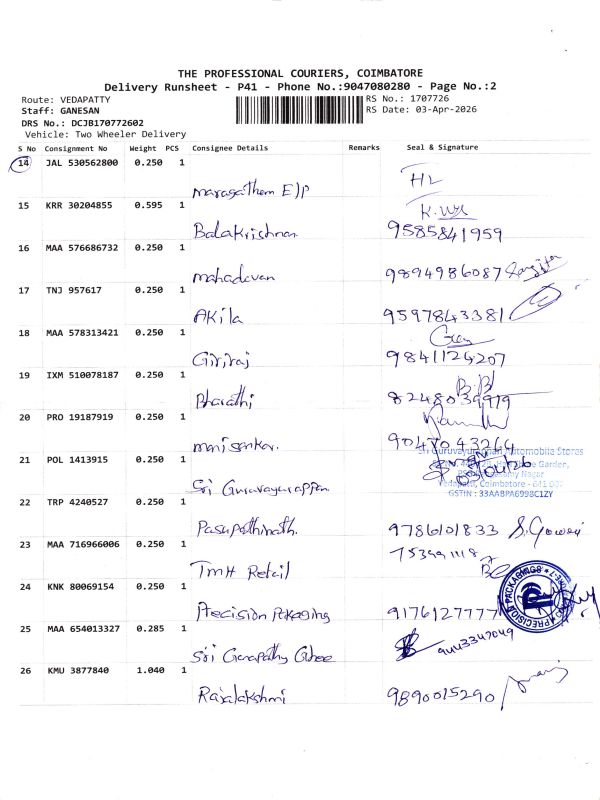 THE PROFESSIONAL COURIERS, COIMBATORE
Delivery Runsheet - P41 - Phone No.:9047080280 - Page No.:2
Route: VEDAPATTY
RS No.: 1707726
Staff: GANESAN
RS Date: 03-Apr-2026
DRS No.: DCJB170772602
Vehicle: Two Wheeler Delivery
S No Consignment No Weight PCS Consignee Details Remarks Seal & Signature
14 JAL 530562800 0.250 1
Maragatham E/P
15 KRR 30204855 0.595 1
Balakrishnan 9585841959
16 MAA 576686732 0.250 1
mahadevan 9894986087
17 TNJ 957617 0.250 1
Akila 9597843381
18 MAA 578313421 0.250 1
Giriraj 9841124207
19 IXM 510078187 0.250 1
Bharathi 8248039979
20 PRO 19187919 0.250 1
manisankar. 9047043264
21 POL 1413915 0.250 1
Sri Guruvayurappan Automobile Stores
Vedapatti, Coimbatore - 641 007
GSTIN : 33AABPA6998C1ZY
Sri Guruvayurappan
22 TRP 4240527 0.250 1
Pasupathinath. 9786101833 S. Gowri
23 MAA 716966006 0.250 1
TMH Retail
24 KNK 80069154 0.250 1
PRECISION PACKAGINGS
Precision Packaging 9176127777
25 MAA 654013327 0.285 1
Sri Ganapathy Ghee 9443347049
26 KMU 3877840 1.040 1
Rajalakshmi 9890015290